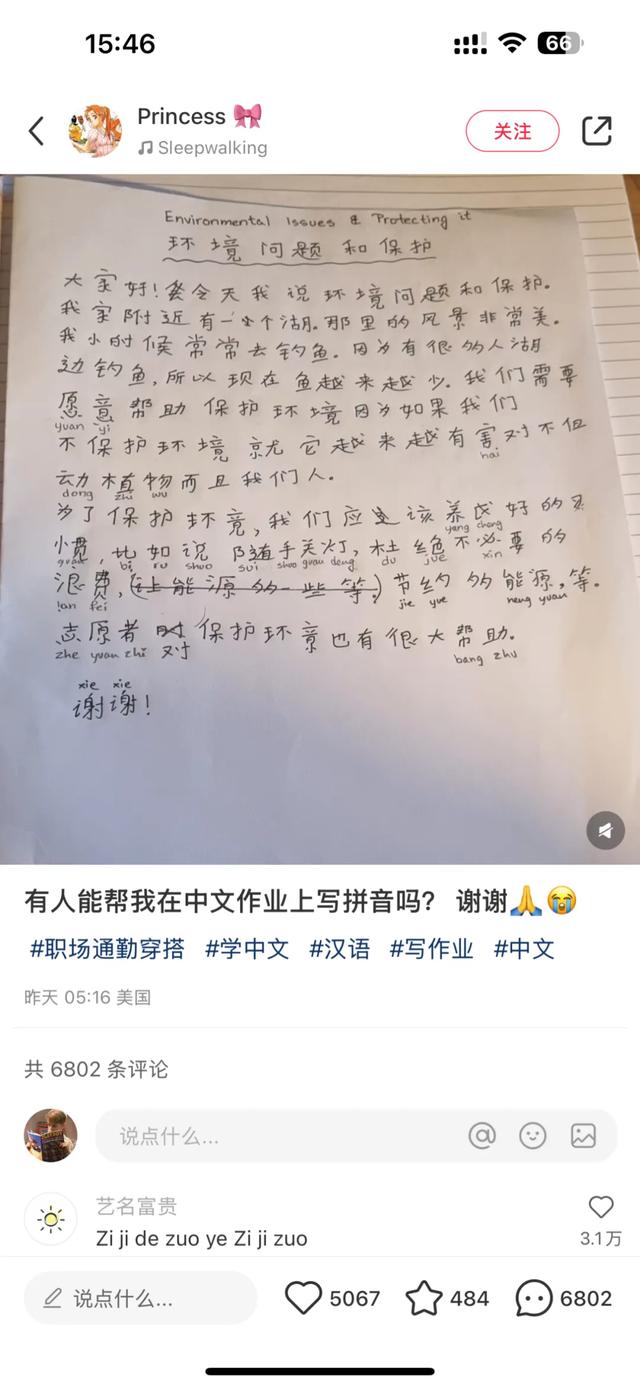 15:46
66
Princess 🎀
Sleepwalking
关注
Environmental Issues & Protecting it
环境问题和保护
大家好!今天我说环境问题和保护。
我家附近有一个湖。那里的风景非常美。
我小时候常常去钓鱼。因为有很多人湖
边钓鱼,所以现在鱼越来越少。我们需要
愿意帮助保护环境因为如果我们
yuan yi
不保护环境就它越来越有害对不但
hai
动植物而且我们人。
dong zhi wu
为了保护环境,我们应该养成好的习
yang cheng
惯,比如说随手关灯,杜绝不必要的
guan bi ru shuo sui shou guan deng du jue xin
浪费,(让能源的一些等)节约的能源,等。
lan fei jie yue neng yuan
志愿者对保护环境也有很大帮助。
zhe yuan zhi 对 bang zhu
xie xie
谢谢!
有人能帮我在中文作业上写拼音吗? 谢谢🙏😭
#职场通勤穿搭 #学中文 #汉语 #写作业 #中文
昨天 05:16 美国
共 6802 条评论
说点什么...
艺名富贵
Zi ji de zuo ye Zi ji zuo
3.1万
说点什么... 5067 484 6802